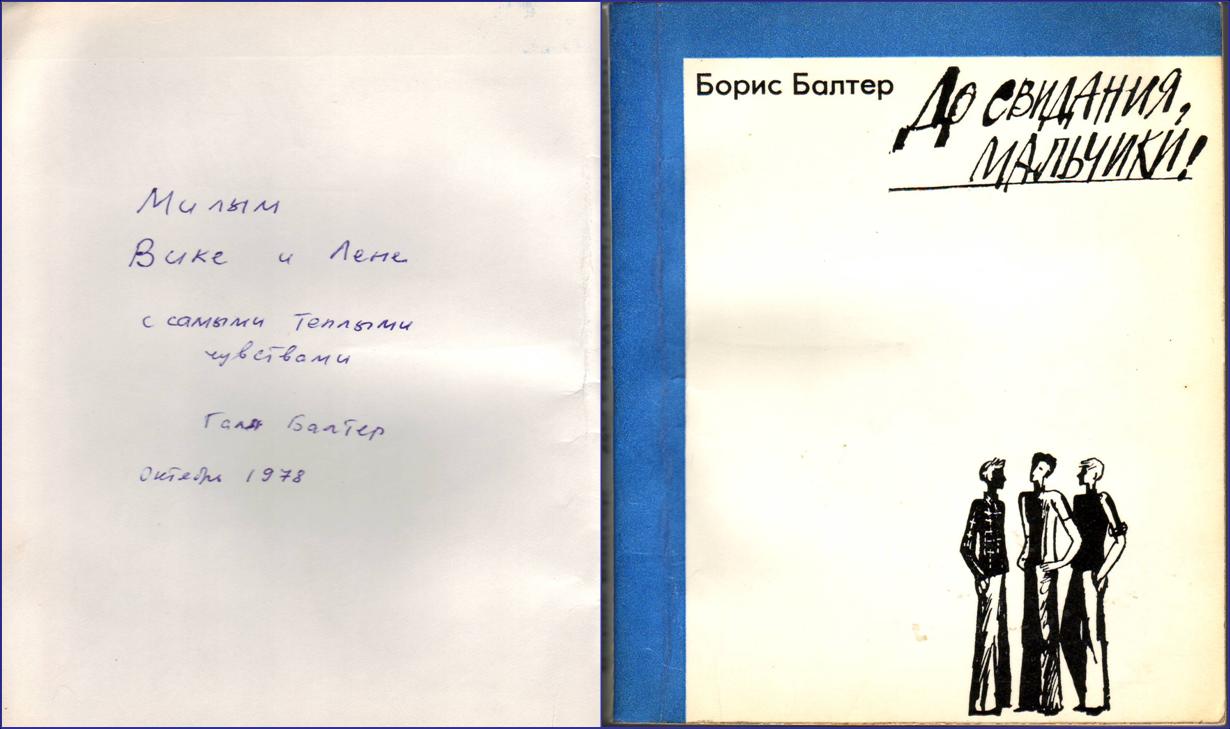 Милым
Вике и Лене
с самыми теплыми
чувствами
Галя Балтер
Октябрь 1978
Борис Балтер
До свидания,
мальчики!